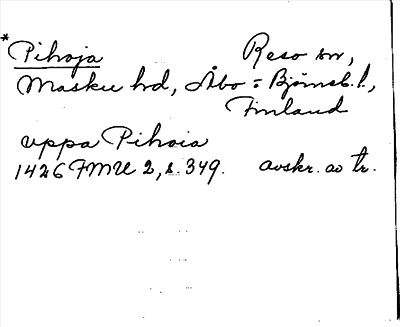 * Pihoja Reso sn,
Masku hd, Åbo = Björneb. l.,
Finland
uppa Pihoia
1426 FMU 2, s. 349. avskr. av tr.